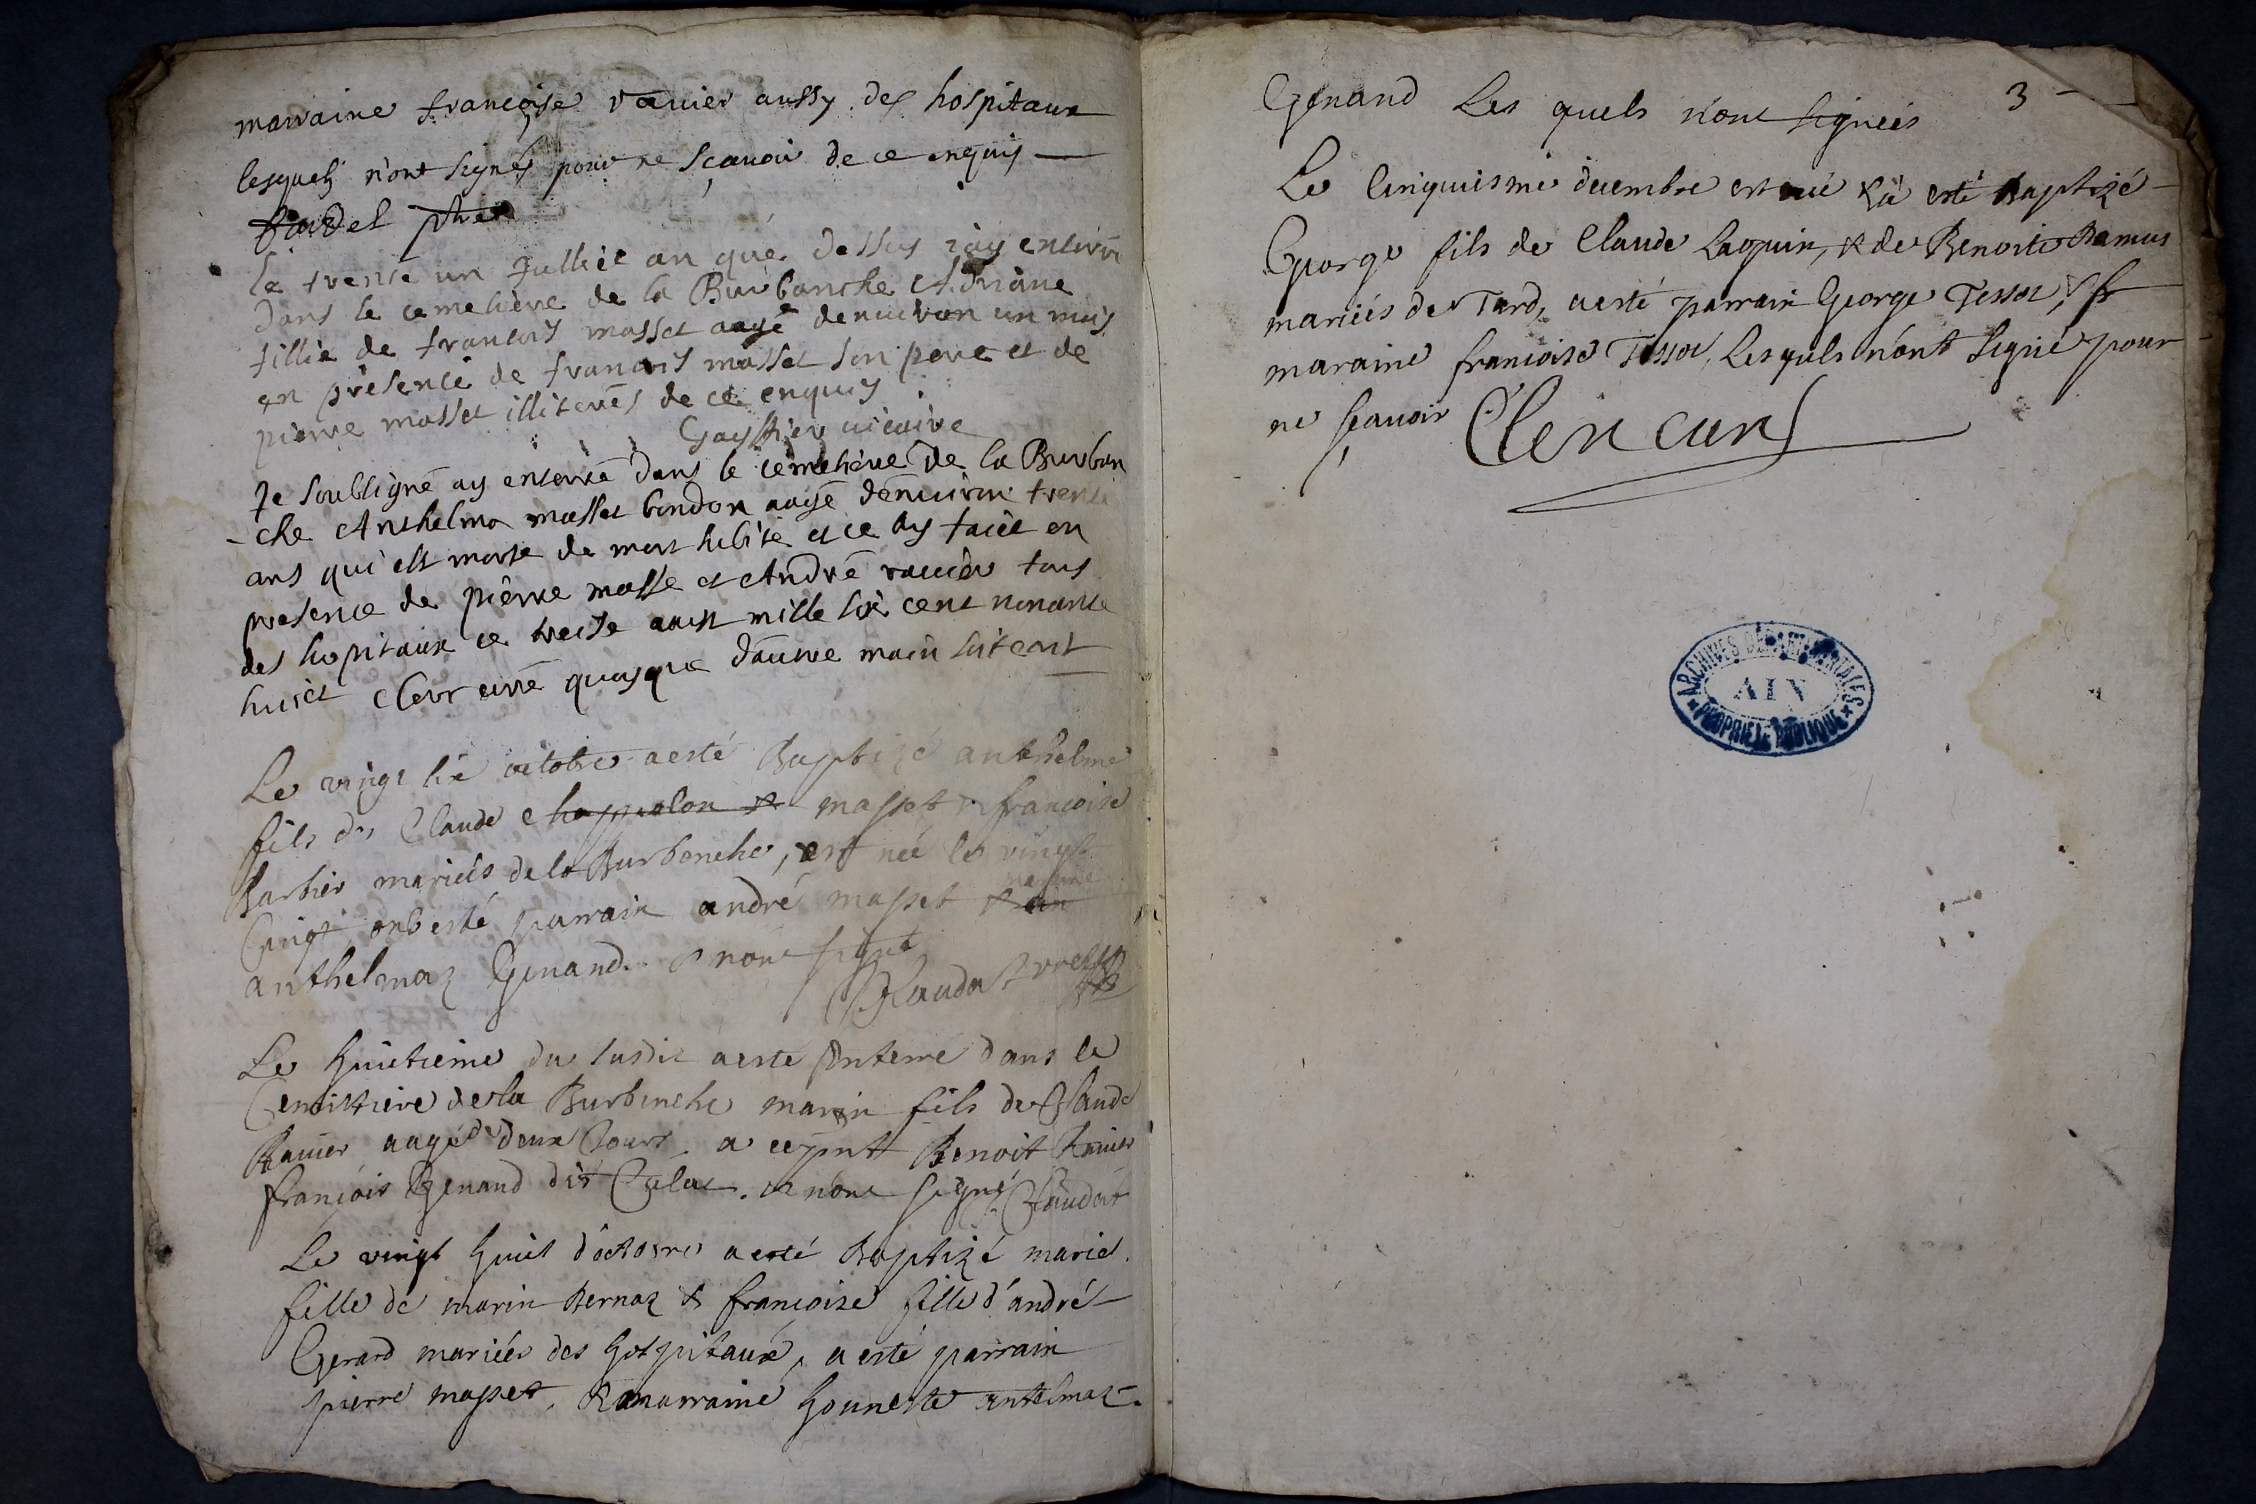 marraine françoise ravier aussy des hospitaux
lesquelz n'ont signés pour ne sçavoir de ce enquis
le trente un Jullict an que dessus j'ay enterré
dans le cemetiere de la Burbanche Adriane
fillie de francois masset aagé denuiron un mois
en présence de francois masset son pere et de
pierre masset illiterés de ce enquis
vicaire
Je soubsigné ay enterré dans le cemetiere de la Burban
-che Anthelma masset bondon aagé denuiron trente
ans qui est morte de mort subite et ce ay faict en
presence de pierre masse et André ravier tous
des hopitaux ce treise aoust mille six cent nonante
huict curé quoyque d'autre main
Le vingt six octobre a esté Baptizé anthelme
fils de Claude masset & françoise
Barbier mariés de la Burbenche, est né le vingt
cinq, ont esté parrain andré masset & marraine
anthelmaz Genand & n'ont signé
Le huictieme du susdit a esté Enterré dans le
Cemittiere de la Burbenche marin fils de Claude
Ravier aagé de deux Jours a ce pnt Benoit Ravier
françois Genand dit & n'ont signé
Le vingt huit d'octobre a esté Baptizé marie
fille de marin Bernaz & francoise fille d'andré
Gerard mariés des hospitaux, a esté parrain
pierre masset, & marraine honneste antelmaz
Genand Les quels n'ont signés 3
Le cinquisme decembre est né & a esté Baptizé
George fils de Claude Laguin, & de Benoite Ramus
mariés de Tard, a esté parrain George Tessot, & fr
maraine francoise Tessot, Lesquels n'ont signé pour
ne sçavoir
ARCHIVES DÉPARTEMENTALES
AIN
PROPRIÉTÉ PUBLIQUE